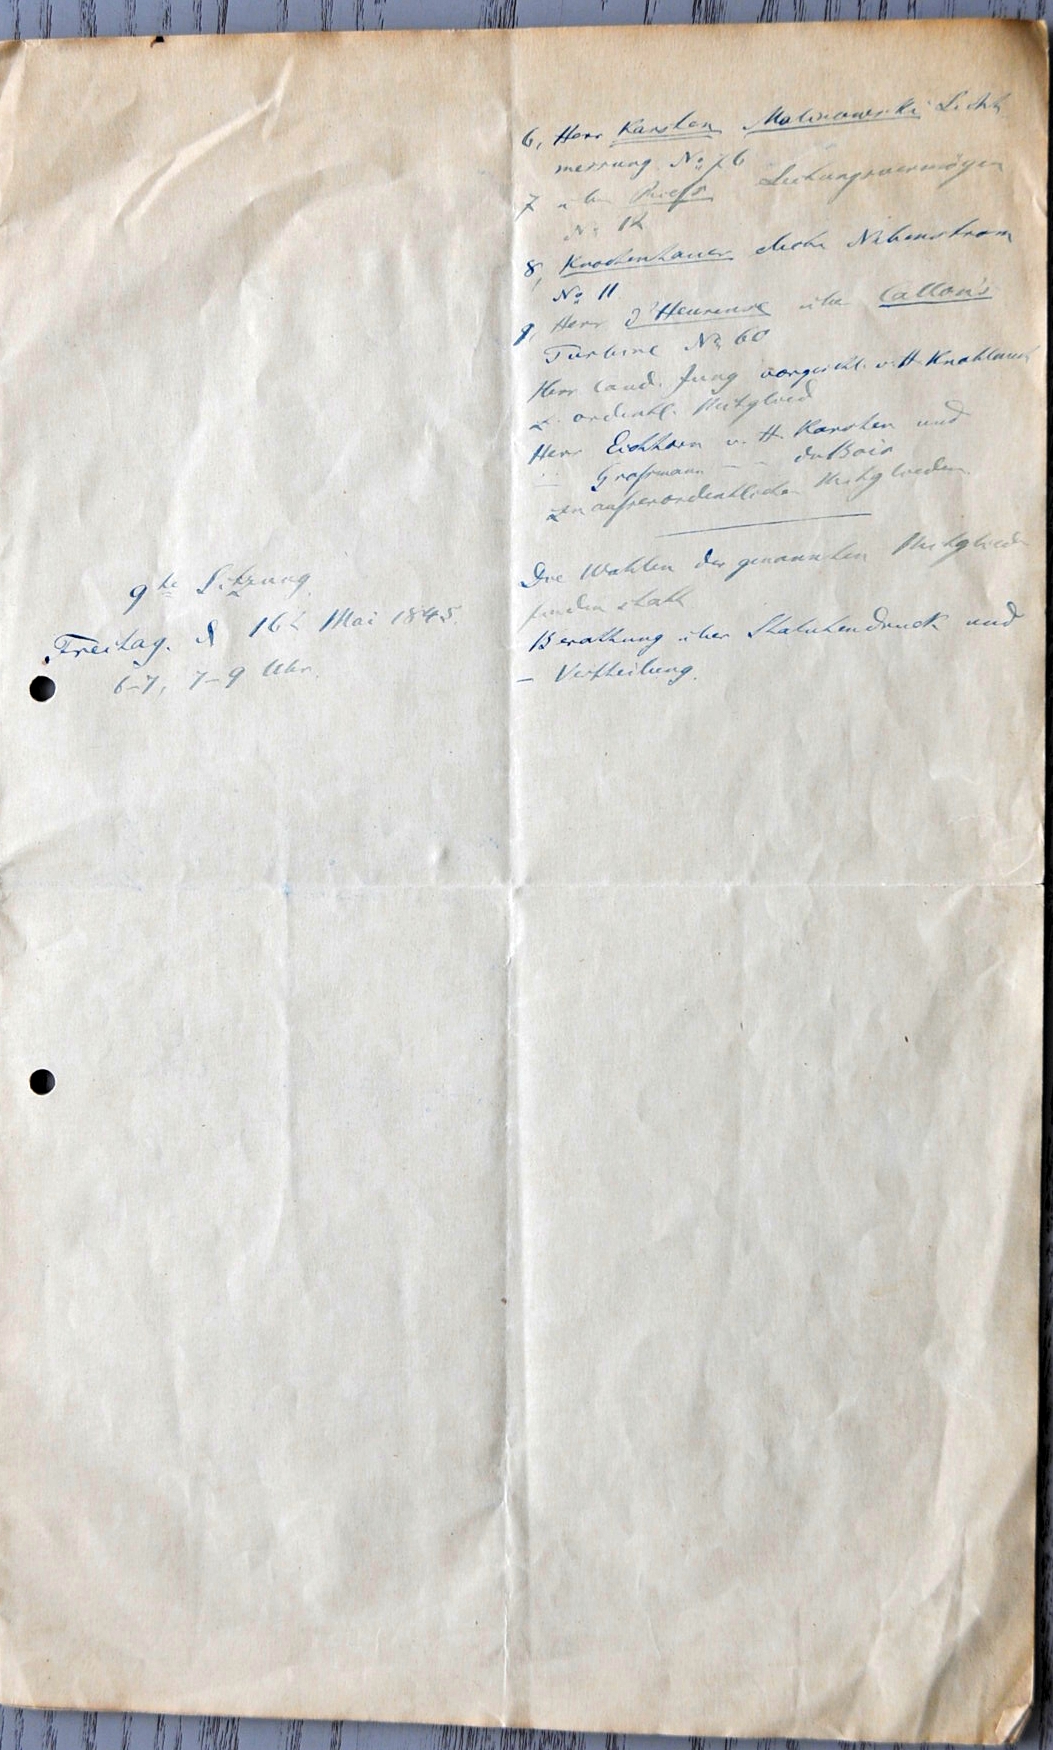 6, Herr Karsten Malinowski Licht
messung. No 76
7 über Riess Leitungsvermögen
No 12
8, Knochenhauer electr Nebenstrom
No 11
9, Herr d'Heureuse über Callon's
Turbine No 60
Herr Cand. Jung vorgeschl. v. H. Knoblauch
z. ordentl. Mitglied
Herr Eichhorn v. H. Karsten und
Grassmann - - du Bois
zu ausserordentlichen Mitgliedern
Die Wahlen der genannten Mitglieder
finden statt
9te Sitzung.
Freitag. d 16t Mai 1845.
6-7, 7-9 Uhr.
Berathung über Statutendruck und
- Vertheilung.